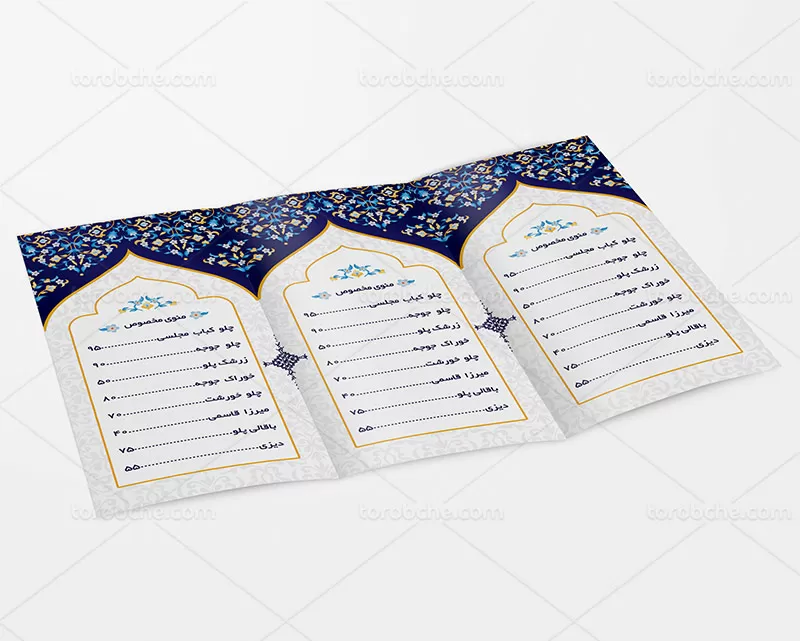 torobche.com torobche.com torobche.com
منوی مخصوص
چلو کباب مجلسی..............۹۵
چلو جوجه..............۹۰
زرشک پلو..............۵۰
خوراک جوجه..............۸۰
چلو خورشت..............۷۰
میرزا قاسمی..............۴۰
باقالی پلو..............۷۵
دیزی..............۵۵
منوی مخصوص
چلو کباب مجلسی..............۹۵
چلو جوجه..............۹۰
زرشک پلو..............۵۰
خوراک جوجه..............۸۰
چلو خورشت..............۷۰
میرزا قاسمی..............۴۰
باقالی پلو..............۷۵
دیزی..............۵۵
منوی مخصوص
چلو کباب مجلسی..............۹۵
چلو جوجه..............۹۰
زرشک پلو..............۵۰
خوراک جوجه..............۸۰
چلو خورشت..............۷۰
میرزا قاسمی..............۴۰
باقالی پلو..............۷۵
دیزی..............۵۵
torobche.com torobche.com torobche.com
torobche.com torobche.com torobche.com